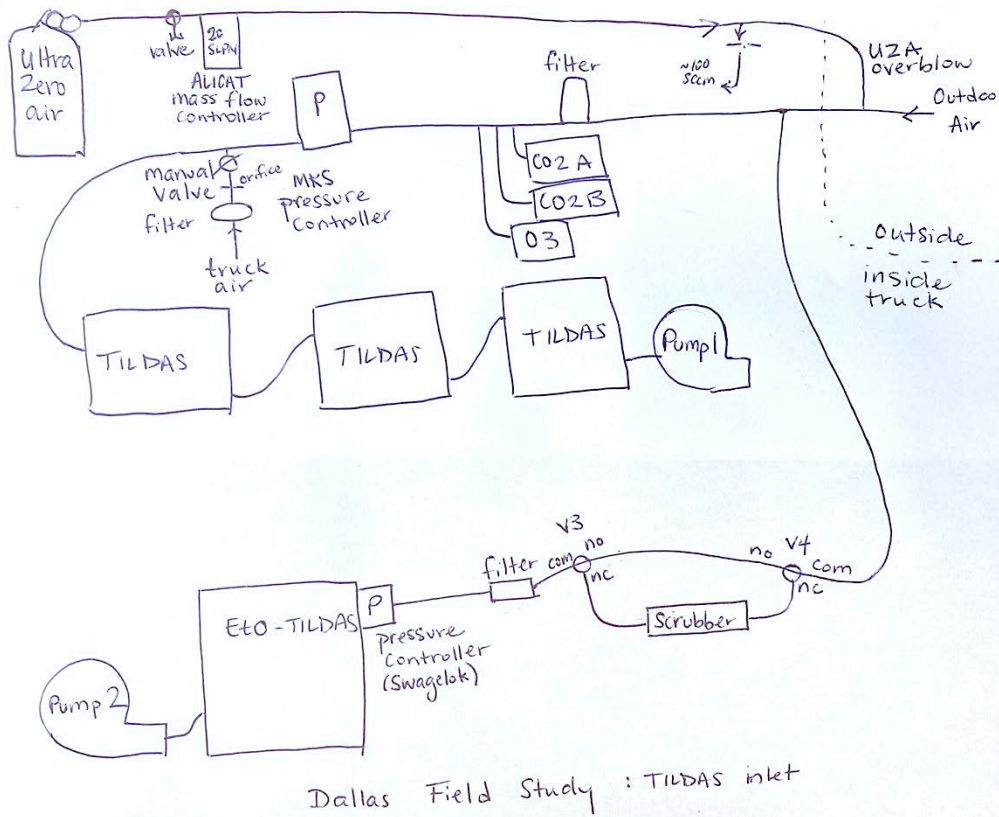 Ultra
Zero
air
valve
20
SLPM
ALICAT
mass flow
controller
P
filter
~100
sccm
UZA
overblow
Outdoor
Air
manual
valve
orifice
filter
truck
air
MKS
pressure
controller
CO2 A
CO2 B
O3
outside
inside
truck
TILDAS
TILDAS
TILDAS
Pump1
V3
no
com
nc
filter
no
V4
com
nc
Scrubber
EtO-TILDAS
P
pressure
controller
(Swagelok)
Pump 2
Dallas Field Study : TILDAS inlet